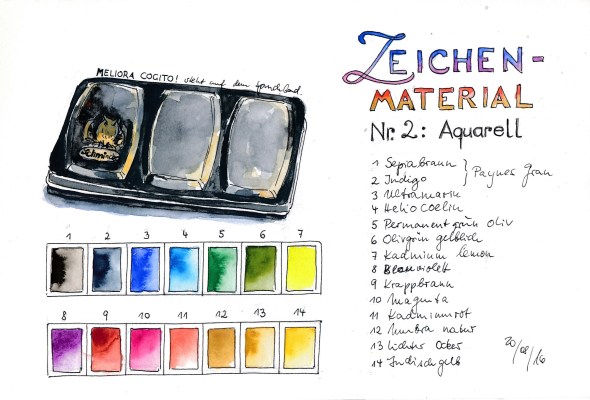 MELIORA COGITO! steht auf dem
Schmincke
ZEICHEN-
MATERIAL
Nr. 2: Aquarell
1 Sepiabraun
2 Indigo
} Paynes Grau
3 Ultramarin
4 Helio Coelin
5 Permanentgrün Oliv
6 Olivgrün gelblich
7 Kadmium Lemon
8 Blauviolett
9 Krappbraun
10 Magenta
11 Kadmiumrot
12 Umbra natur
13 lichter Ocker
14 Indischgelb
20/08/16
1 2 3 4 5 6 7
8 9 10 11 12 13 14